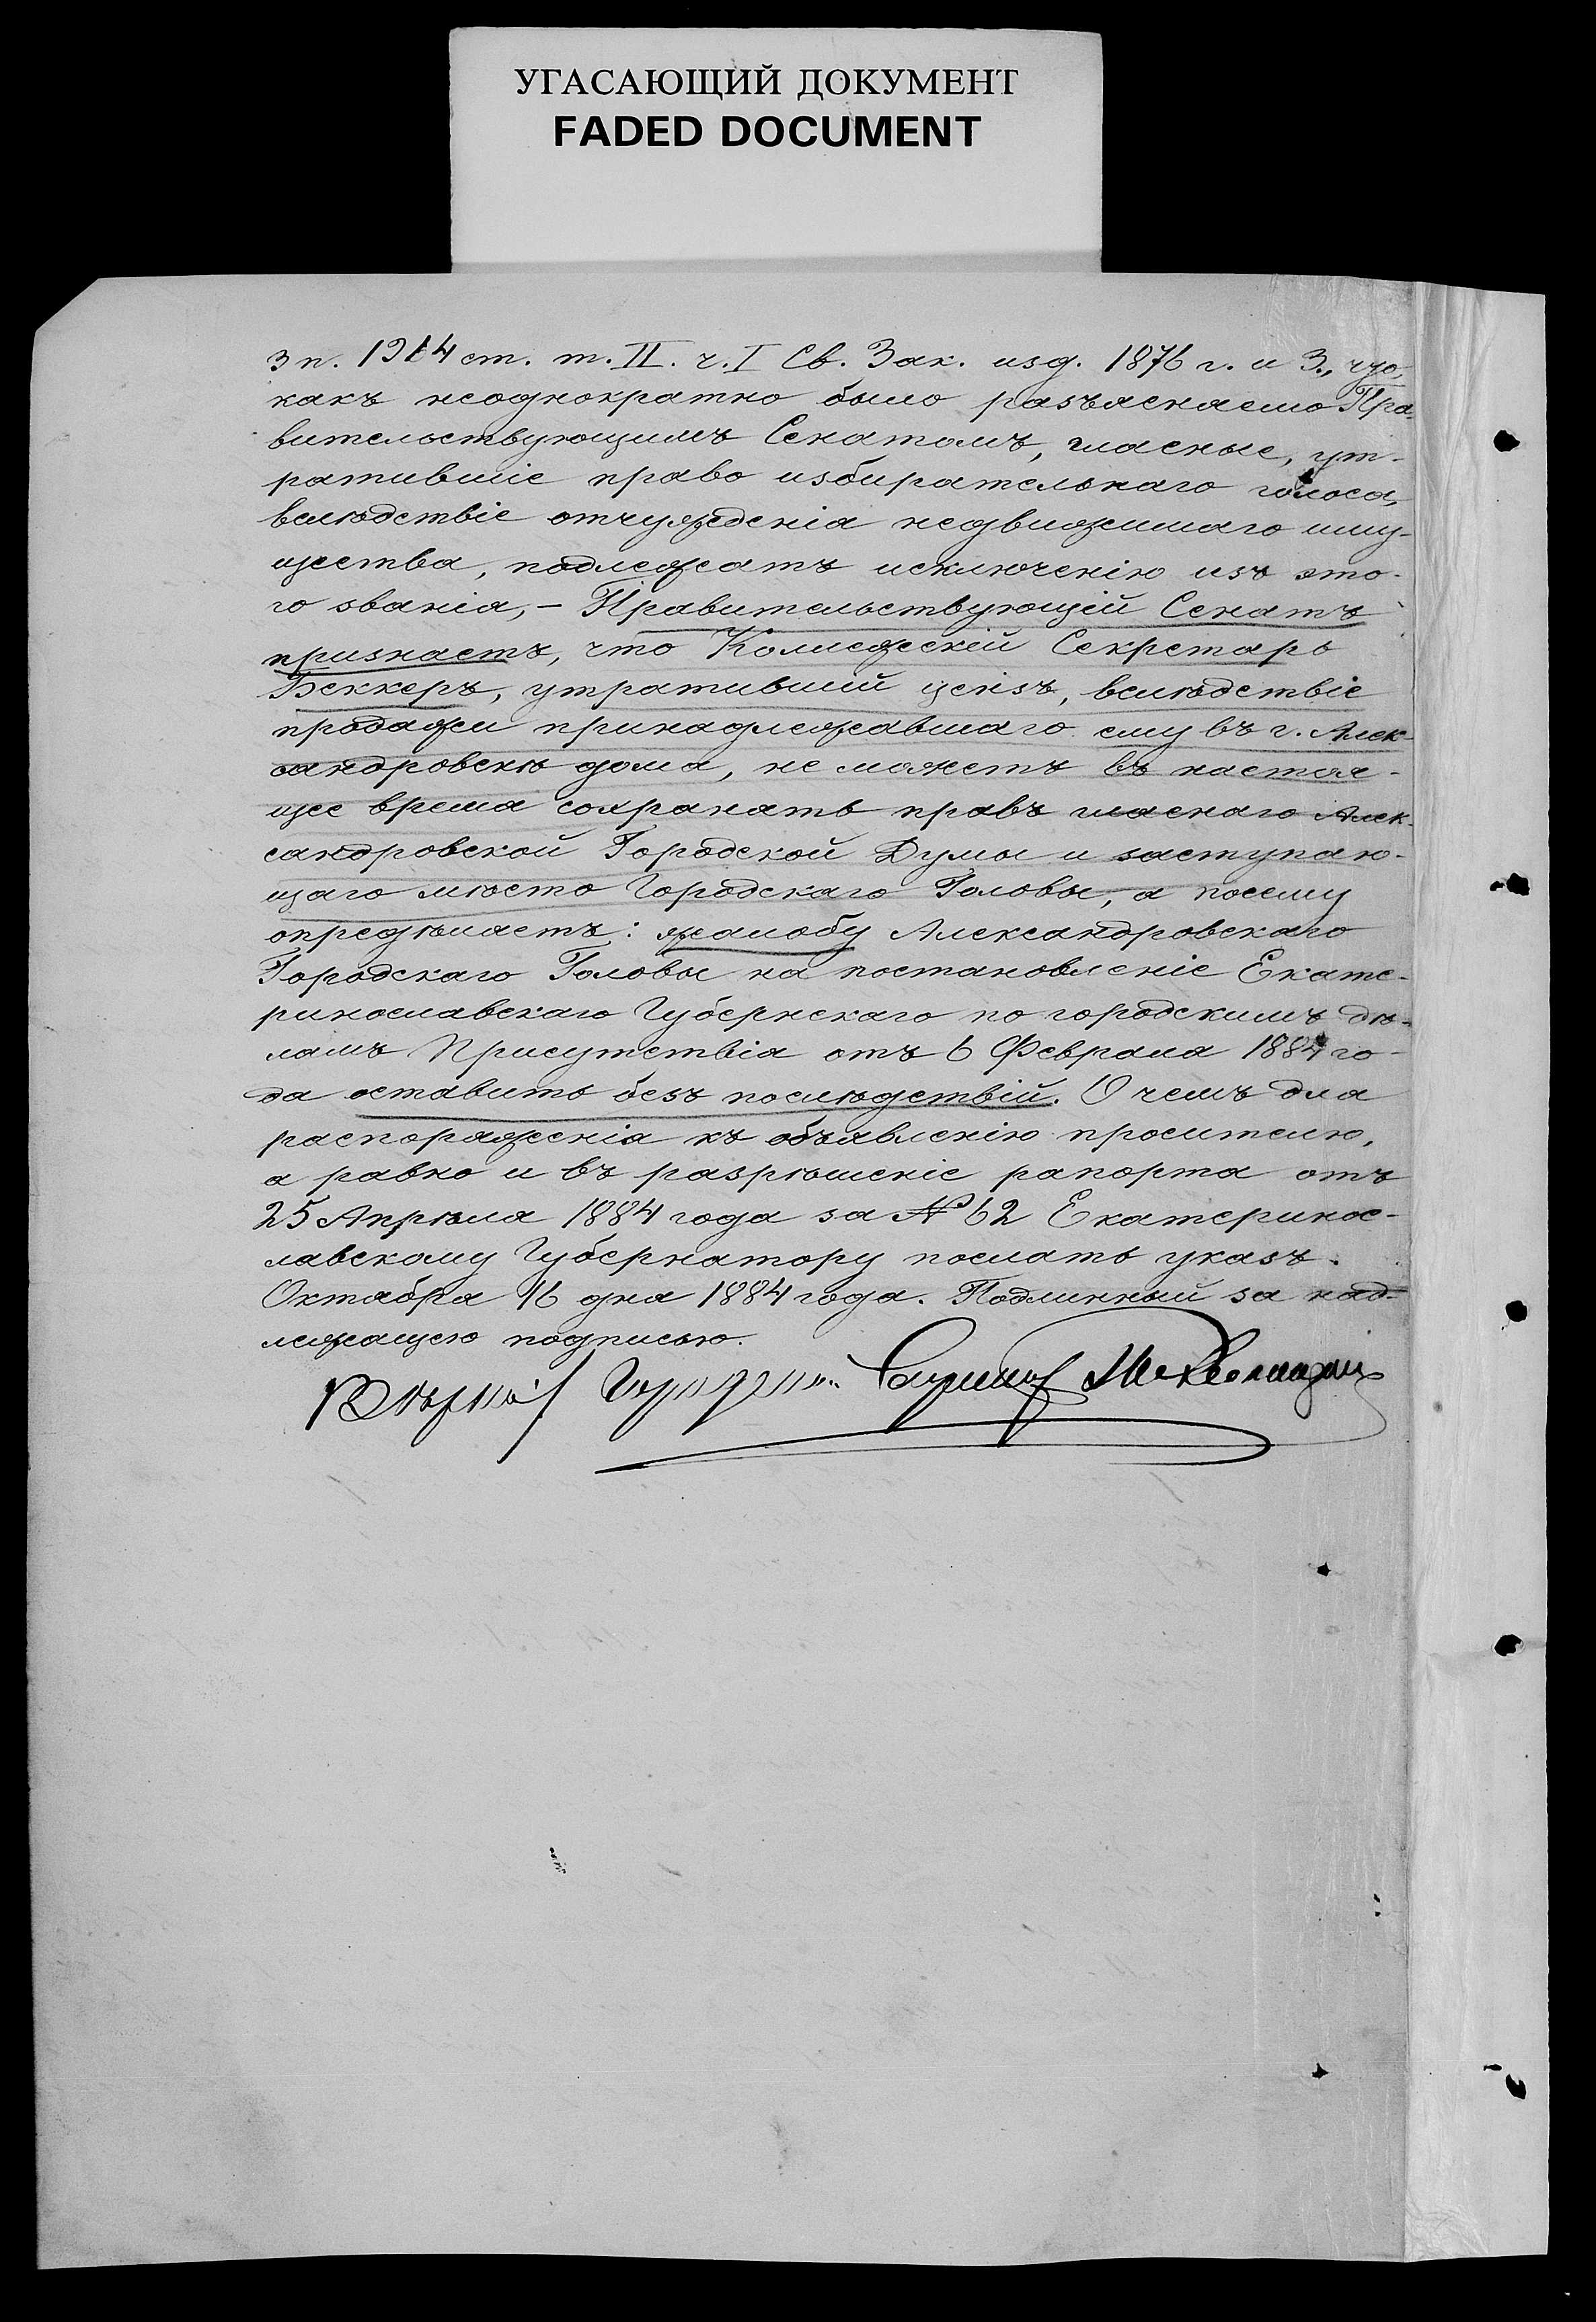 УГАСАЮЩИЙ ДОКУМЕНТ
FADED DOCUMENT
3 п. 1914 ст. т. II. ч. I Св. Зак. изд. 1876 г. и 3., что,
какъ неоднократно было разъясняемо Пра-
вительствующимъ Сенатомъ, гласные, ут-
ратившіе право избирательнаго голоса,
вслѣдствіе отчужденія недвижимаго иму-
щества, подлежатъ исключенію изъ это-
го званія, – Правительствующій Сенатъ
признаетъ, что Коллежскій Секретарь
Беккеръ, утратившій цензъ, вслѣдствіе
продажи принадлежавшаго ему въ г. Алек-
сандровскѣ дома, не можетъ въ настоя-
щее время сохранять правъ гласнаго Алек-
сандровской Городской Думы и заступаю-
щаго мѣсто Городскаго Головы, а посему
опредѣляетъ: жалобу Александровскаго
Городскаго Головы на постановленіе Екате-
ринославскаго Губернскаго по городскимъ дѣ-
ламъ Присутствія отъ 6 Февраля 1884 го-
да оставить безъ послѣдствій. О чемъ для
распоряженія къ объявленію просителю,
а равно и въ разрѣшеніе рапорта отъ
25 Апрѣля 1884 года за № 62 Екатеринос-
лавскому Губернатору послать указъ.
Октября 16 дня 1884 года. Подлинный за над-
лежащею подписью.
Вѣрно: Городской